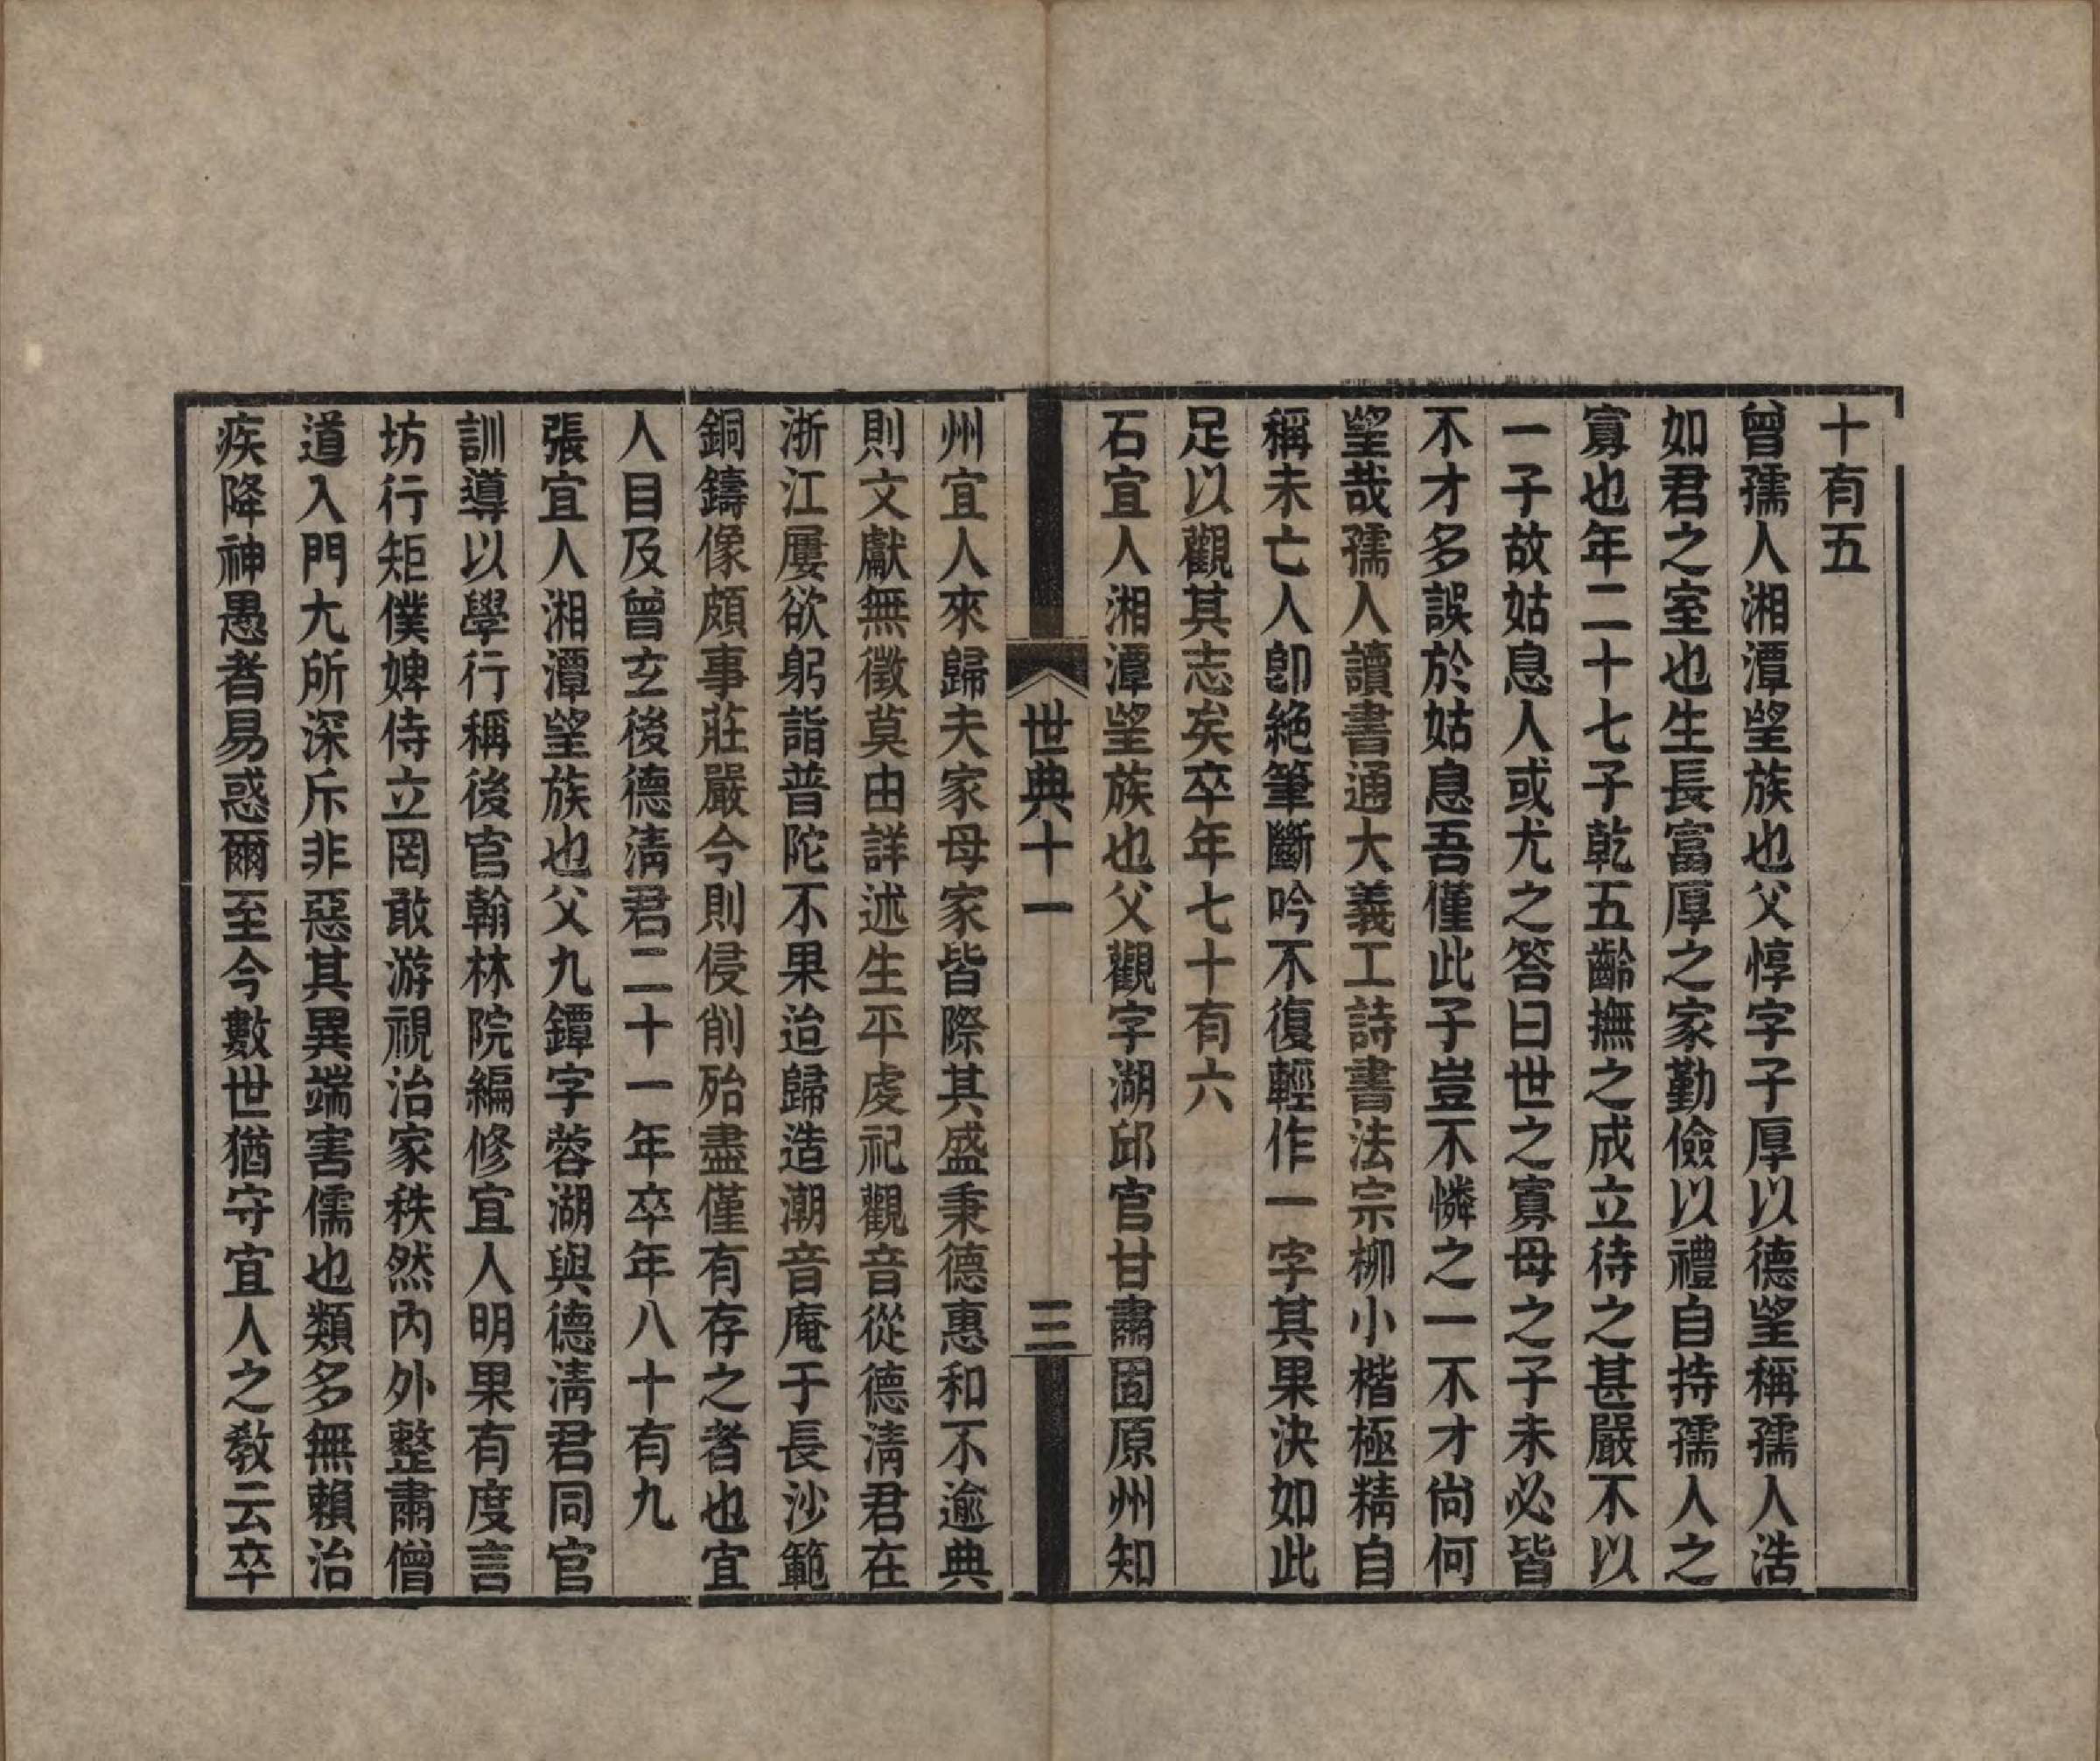 十有五
曾孺人湘潭望族也父惇字子厚以德望稱孺人浩
如君之室也生長富厚之家勤儉以禮自持孺人之
寡也年二十七子乾五齡撫之成立待之甚嚴不以
一子故姑息人或尤之答曰世之寡母之子未必皆
不才多誤於姑息吾僅此子豈不憐之一不才尙何
望哉孺人讀書通大義工詩書法宗柳小楷極精自
稱未亡人卽絕筆斷吟不復輕作一字其果決如此
足以觀其志矣卒年七十有六
石宜人湘潭望族也父觀字湖邱官甘肅固原州知
世典十一
三
州宜人來歸夫家母家皆際其盛秉德惠和不逾典
則文獻無徵莫由詳述生平虔祀觀音從德淸君在
浙江屢欲躬詣普陀不果迨歸造潮音庵于長沙範
銅鑄像頗事莊嚴今則侵削殆盡僅有存之者也宜
人目及曾玄後德淸君二十一年卒年八十有九
張宜人湘潭望族也父九鐔字蓉湖與德淸君同官
訓導以學行稱後官翰林院編修宜人明果有度言
坊行矩僕婢侍立罔敢游視治家秩然內外整肅僧
道入門尤所深斥非惡其異端害儒也類多無賴治
疾降神愚者易惑爾至今數世猶守宜人之敎云卒